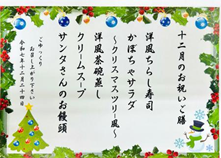 十二月のお祝いご膳
洋風ちらし寿司
かぼちゃサラダ
～クリスマスツリー風～
洋風茶碗蒸し
クリームスープ
サンタさんのお饅頭
ごゆっくり
お召し上がり下さい
令和七年十二月二十四日